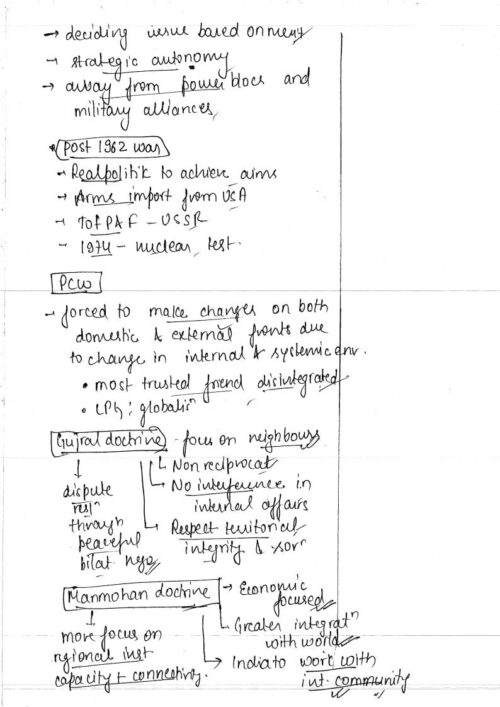 → deciding issue based on merit
→ strategic autonomy
→ away from power blocs and
military alliances
• Post 1962 war
• Realpolitik to achieve aims
- Arms import from USA
- ToFPAF - USSR
- 1974 - nuclear test.
PCW
- forced to make changes on both
domestic & external fronts due
to change in internal & systemic env.
• most trusted friend disintegrated
• LPG; globalisⁿ
Gujral doctrine - focus on neighbours
↳ Non reciprocat
↓ ↳ No interference in
dispute internal affairs
resⁿ
through ↳ Respect territorial
peaceful integrity & sovⁿ
bilat nego
Manmohan doctrine → Economic
focused
↓ ↳ Greater integratⁿ
with world
more focus on
regional inst → India to work with
capacity + connectivity. int. community